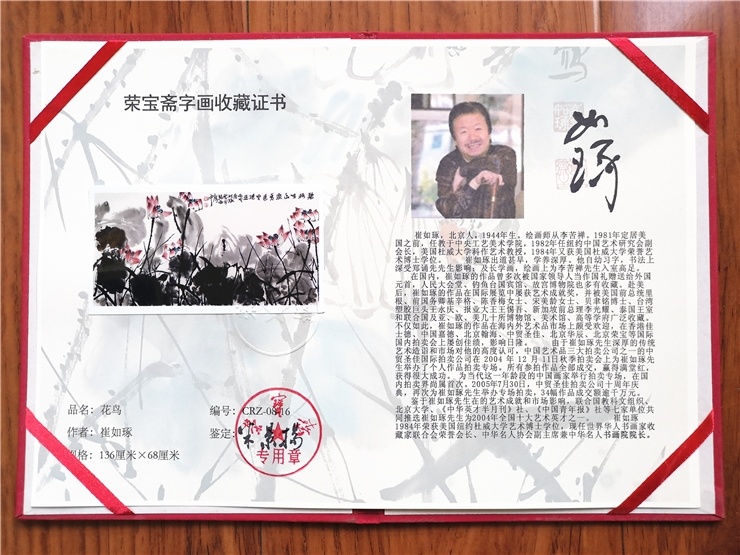 荣宝斋字画收藏证书
品名：花鸟
编号：CRZ-0816
作者：崔如琢
鉴定：
规格：136厘米×68厘米
专用章
如琢
崔如琢，北京人，1944年生，绘画师从李苦禅。1981年定居美
国之前，任教于中央工艺美术学院，1982年任纽约中国艺术研究会副
会长，美国杜威大学科作艺术教授。1984年又获美国杜威大学荣誉艺
术博士学位。 崔如琢出道甚早，学养深厚。他自幼习字，书法上
深受郑诵先先生影响；及长学画，绘画上为李苦禅先生入室高足。
在国内，崔如琢的作品曾多次被国家领导人当作国礼赠送给外国
元首，人民大会堂、钓鱼台国宾馆、故宫博物院也多有收藏。赴美
后，崔如琢的作品在国际展览中屡获艺术成就奖，并被美国前总统里
根、前国务卿基辛格、陈香梅女士、宋美龄女士、贝聿铭博士、台湾
塑胶巨头王永庆、报业大王王惕吾、新加坡前总理李光耀、泰国王室
和联合国及亚、欧、美几十所博物馆、美术馆、高等学府广泛收藏。
不仅如此，崔如琢的作品在海内外艺术品市场上颇受欢迎，在香港佳
士德、中国嘉德、北京翰海、中贸圣佳、北京华辰、北京荣宝等国际
国内拍卖会上屡创佳绩，影响日隆。 由于崔如琢先生深厚的传统
艺术造诣和市场对他的高度认可，中国艺术品三大拍卖公司之一的中
贸圣佳国际拍卖公司在 2004 年 12 月 11日秋季拍卖会上为崔如琢先
生举办了个人作品拍卖专场。所有参拍作品全部成交，赢得满堂红，
获得很大成功。 为当代这一年龄段的中国画家举行拍卖专场，在国
内拍卖界尚属首次。2005年7月30日，中贸圣佳拍卖公司十周年庆
典，再次为崔如琢先生举办专场拍卖，34幅作品成交额逾千万元。
鉴于崔如琢先生在的艺术成就和市场影响，联合国教科文组织、
北京大学、《中华英才半月刊》社、《中国青年报》社等七家单位共
同推选崔如琢先生为2004年全国十大艺术英才之一。 崔如琢
1984年荣获美国纽约杜威大学艺术博士学位。现任世界华人书画家收
藏家联合会荣誉会长、中华名人协会副主席兼中华名人书画院院长。